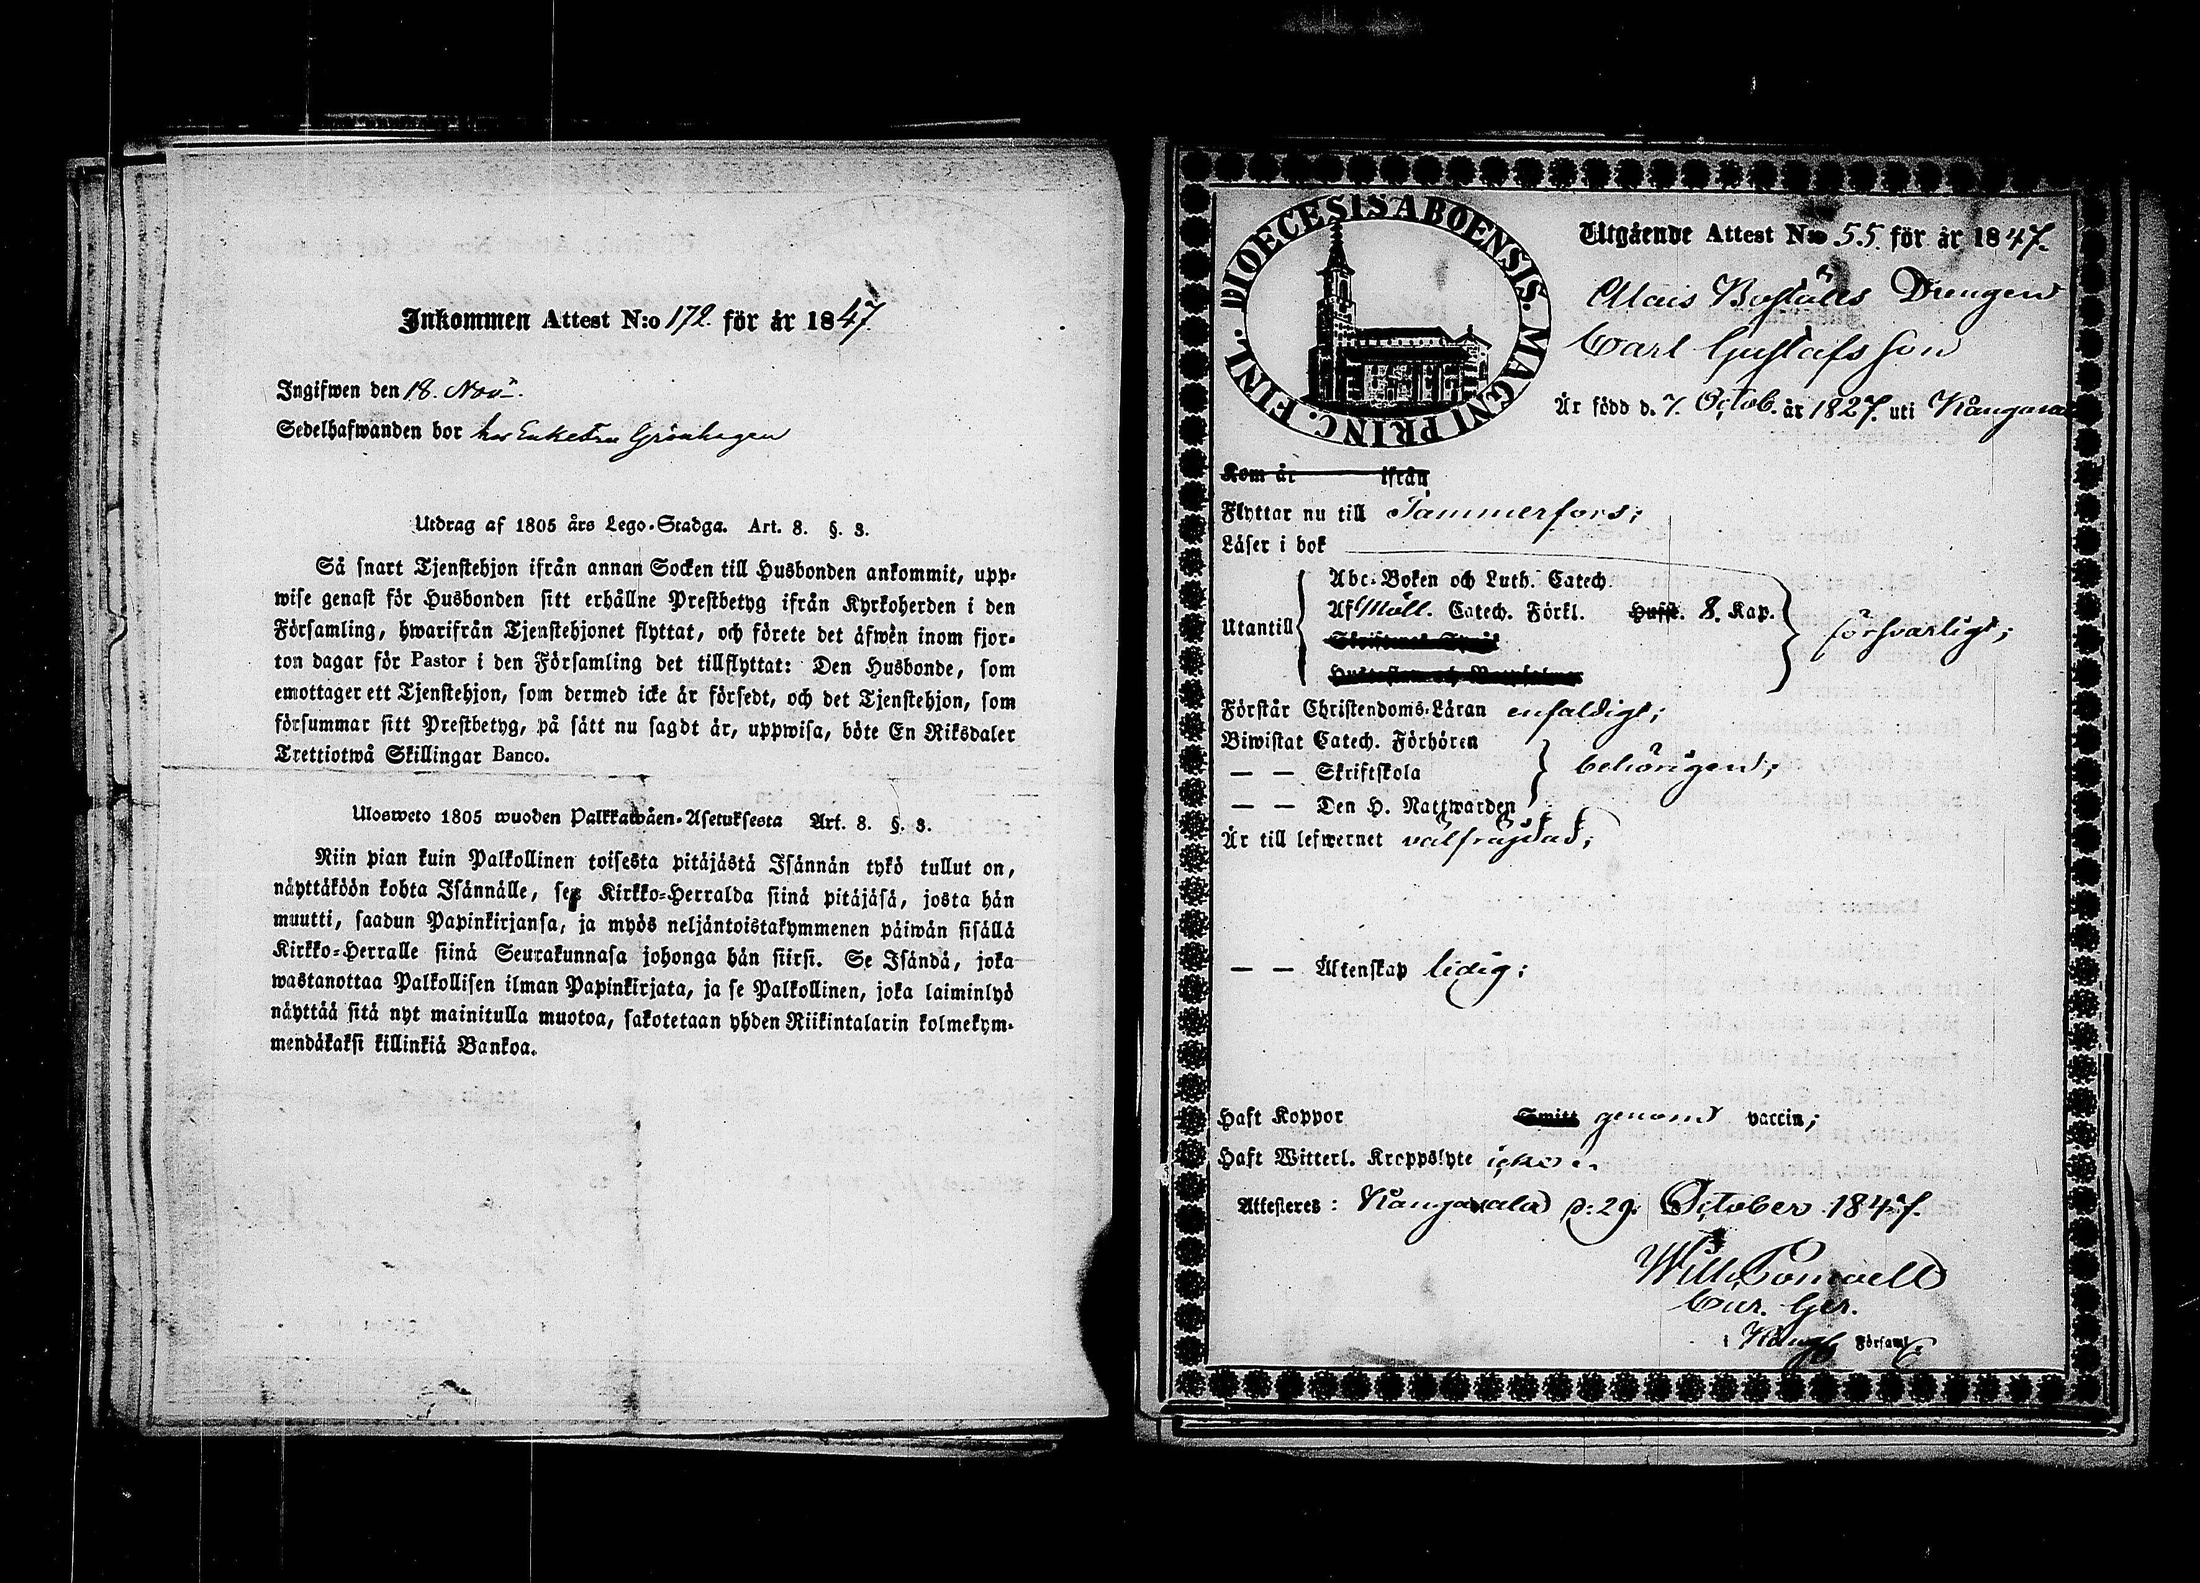 Inkommen Attest N:o 172. för år 1847
Ingifwen den 18. Nov.
Sedelhafwanden bor hos Enkefru Grönhagen
Utdrag af 1805 års Lego-Stadga. Art. 8. §. 3.
Så snart Tjenstehjon ifrån annan Socken till Husbonden ankommit, upp-
wise genast för Husbonden sitt erhållne Prestbetyg ifrån Kyrkoherden i den
Församling, hwarifrån Tjenstehjonet flyttat, och förete det äfwen inom fjor-
ton dagar för Pastor i den Församling det tillflyttat: Den Husbonde, som
emottager ett Tjenstehjon, som dermed icke är försedt, och det Tjenstehjon, som
försummar sitt Prestbetyg, på sätt nu sagdt är, uppwisa, böte En Riksdaler
Trettiotwå Skillingar Banco.
Ulosweto 1805 wuoden Palkkawäen-Asetuksesta Art. 8. §. 3.
Niin pian kuin Palkollinen toisesta pitäjästä Isännän tykö tullut on,
näyttäköön kohta Isännälle, sen Kirkko-Herralda siinä pitäjäsä, josta hän
muutti, saadun Papinkirjansa, ja myös neljäntoistakymmenen päiwän sisällä
Kirkko-Herralle siinä Seurakunnasa johonga hän siirsi. Se Isändä, joka
wastanottaa Palkollisen ilman Papinkirjata, ja se Palkollinen, joka laiminlyö
näyttää sitä nyt mainitulla muotoa, sakotetaan yhden Riikintalarin kolmekym-
mendäkaksi killinkiä Bankoa.
DIOECESIS ABOENSIS. MAGNI PRINC. FINL.
Utgående Attest N:o 55. för år 1847.
Bostälts Drengen
Carl Gustafsson
Är född d. 7. Octob. år 1827. uti Kångasala
Kom år ifrån
Flyttar nu till Tammerfors;
Läser i bok
Utantill
Abc-Boken och Luth. Catech.
Af Möll. Catech. Förkl. Husst. 8. Kap.
försvarligt;
Förstår Christendoms-Läran enfaldigt;
Biwistat Catech. Förhören
— — Skriftskola
behörigen;
— — Den H. Nattwarden
Är till lefwernet välfrägdad;
— — Äktenskap ledig;
Haft Koppor Smitt genom vaccin;
Haft Witterl. Kroppslyte icke.
Attesteres: Kångasala d: 29. October 1847.
Cur. Ger.
i Kångs. Församl.